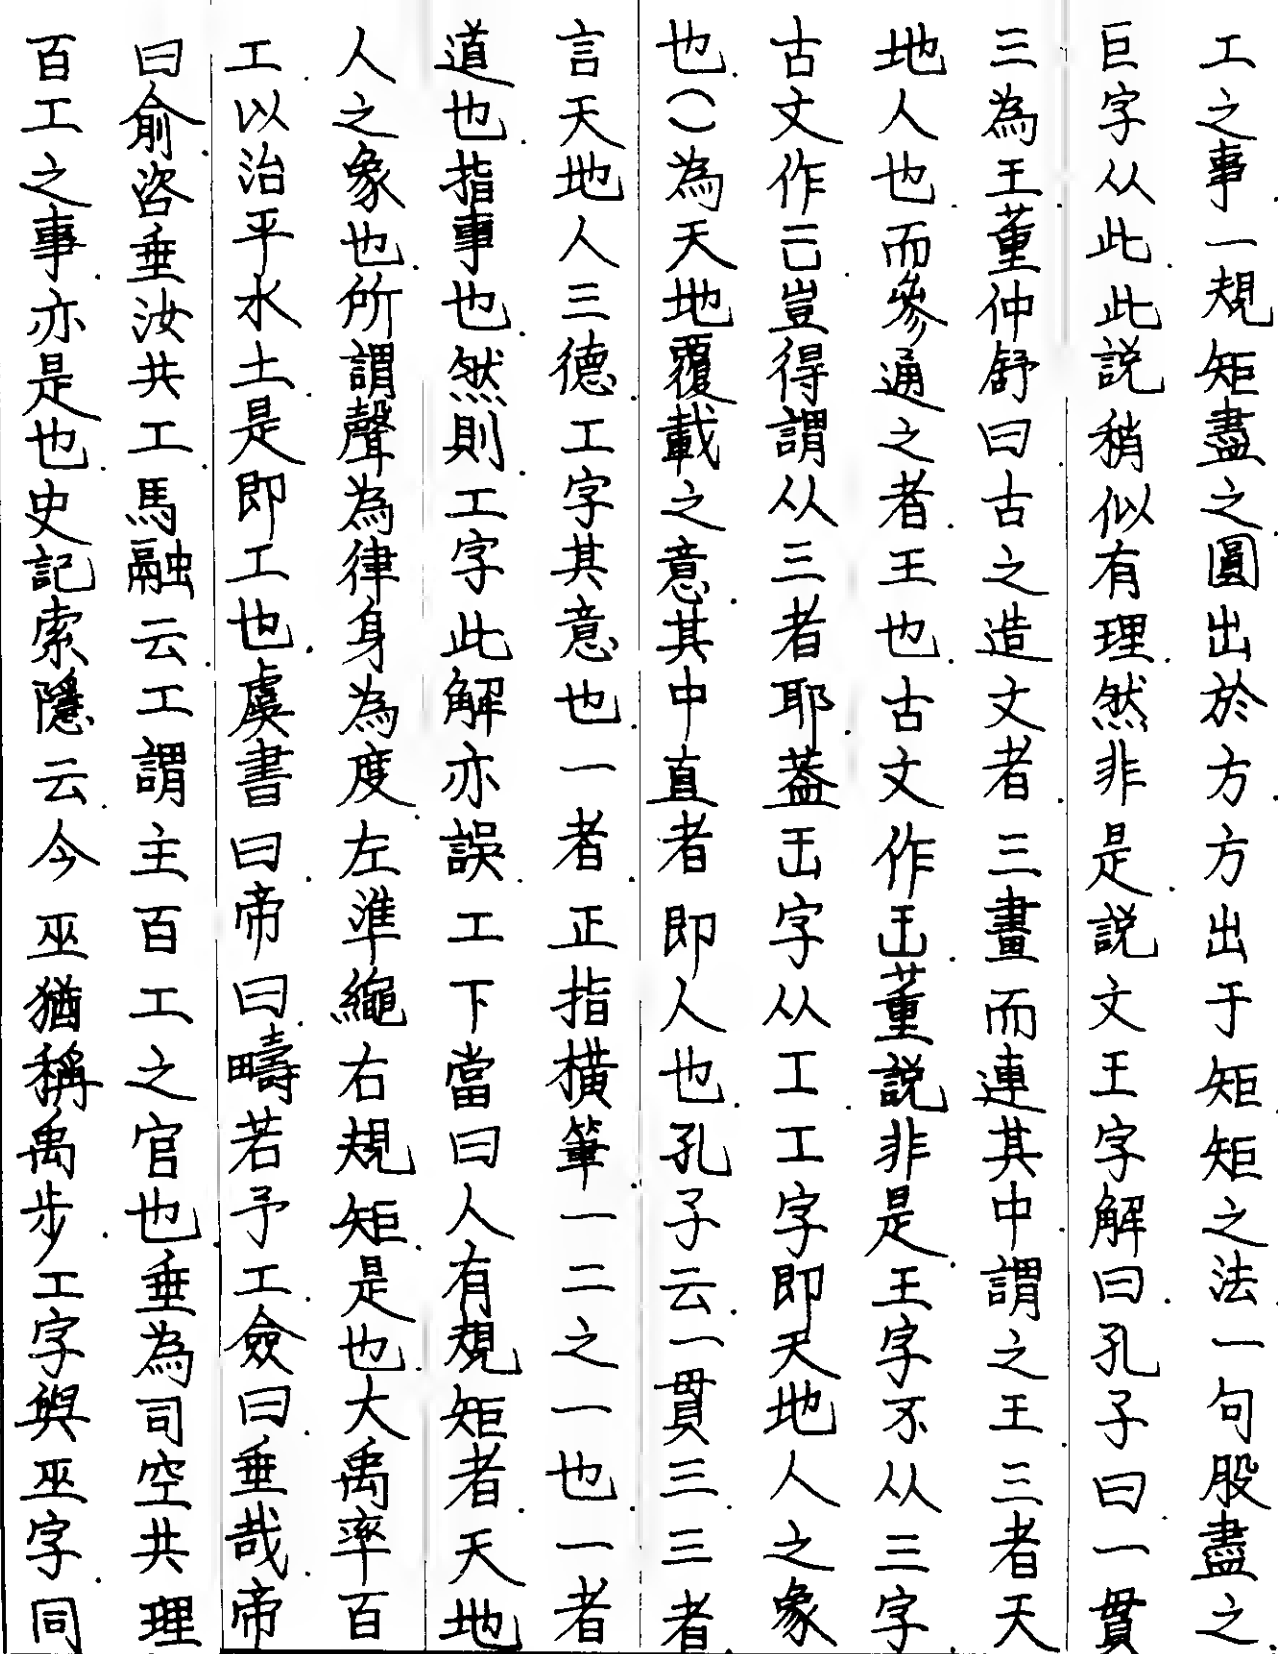 工之事一規矩盡之圓出於方方出于矩矩之法一句股盡之
巨字从此此説稍似有理然非是説文王字解曰孔子曰一貫
三為王董仲舒曰古之造文者三畫而連其中謂之王三者天
地人也而參通之者王也古文作𠙻董説非是王字不从三字
古文作𠙻豈得謂从三者耶葢𠙻字从工工字即天地人之象
也︶為天地覆載之意其中直者即人也孔子云一貫三三者
言天地人三德工字其意也一者正指橫筆一二之一也一者
道也指事也然則工字此解亦誤工下當曰人有規矩者天地
人之象也所謂聲為律身為度左準繩右規矩是也大禹率百
工以治平水土是即工也虞書曰帝曰疇若予工僉曰垂哉帝
曰俞咨垂汝共工馬融云工謂主百工之官也垂為司空共理
百工之事亦是也史記索隱云今巫猶稱禹步工字與巫字同